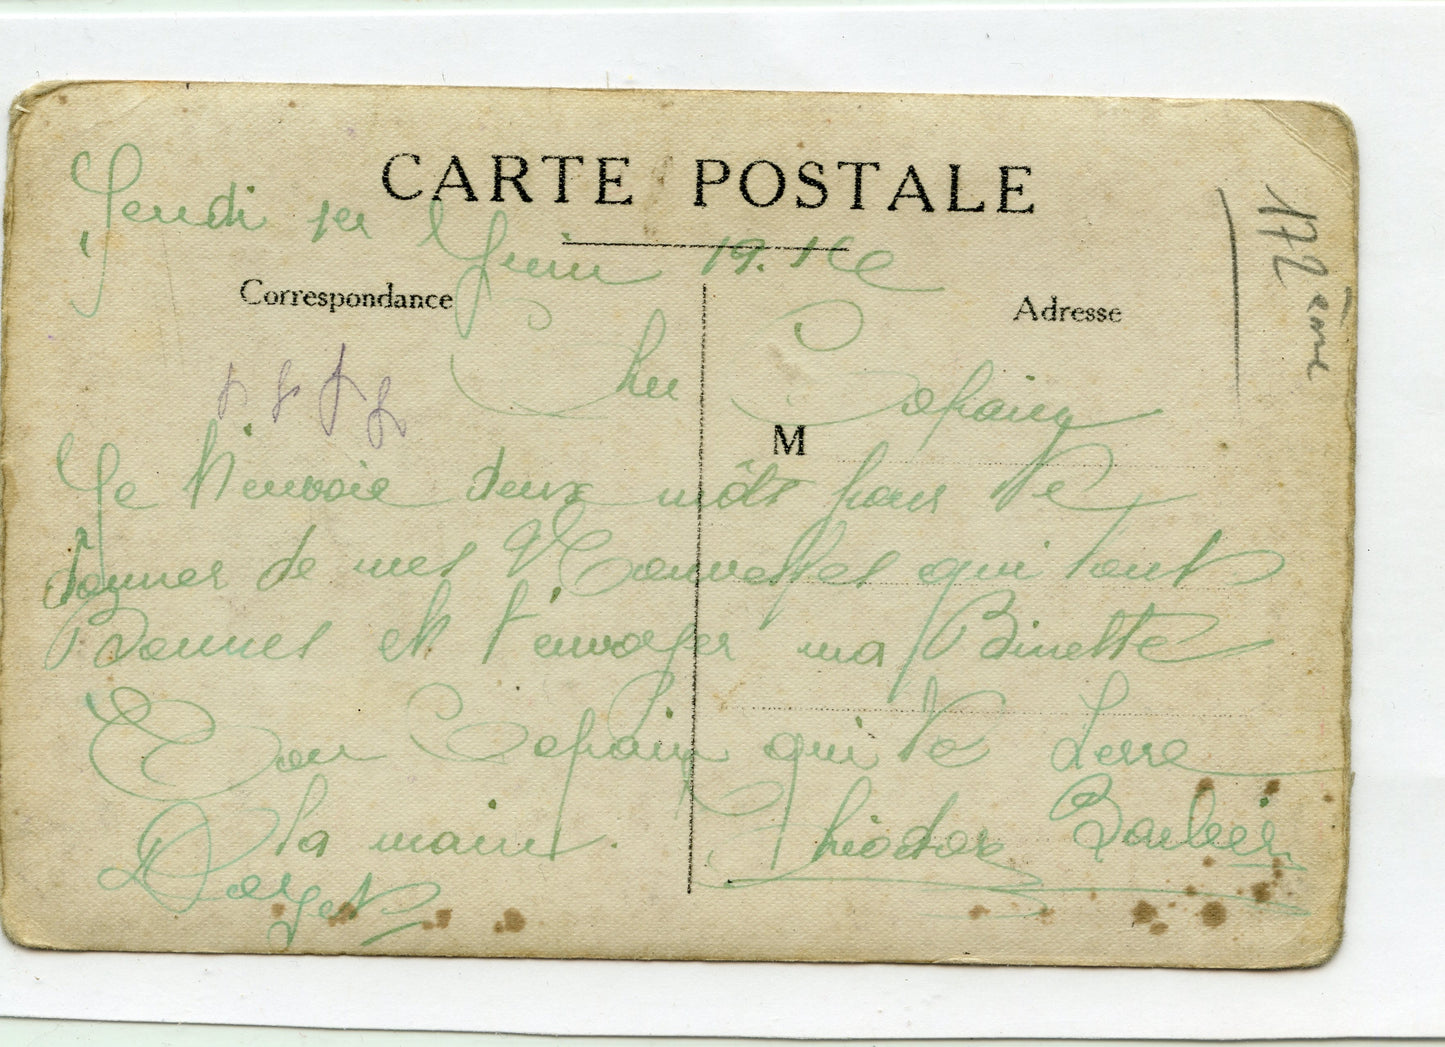 CARTE POSTALE
Jeudi 1er Juin 1916
Correspondance
Adresse
172ème
Cher Copain
M
Je t'envoie deux môts pour te
donner de mes Nouvelles qui sont
Bonnes et t'envoyer ma Binette
Ton Copain qui te serre
la main.
Théodor Barbier